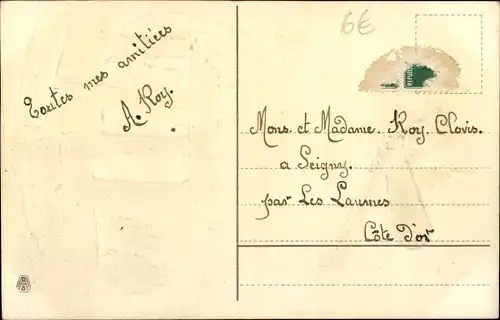 Toutes mes amitiées
A. Roy.
6€
REPUB
Mons. et Madame. Roy. Clovis.
a Seigny.
par Les Laumes
Côte D'or